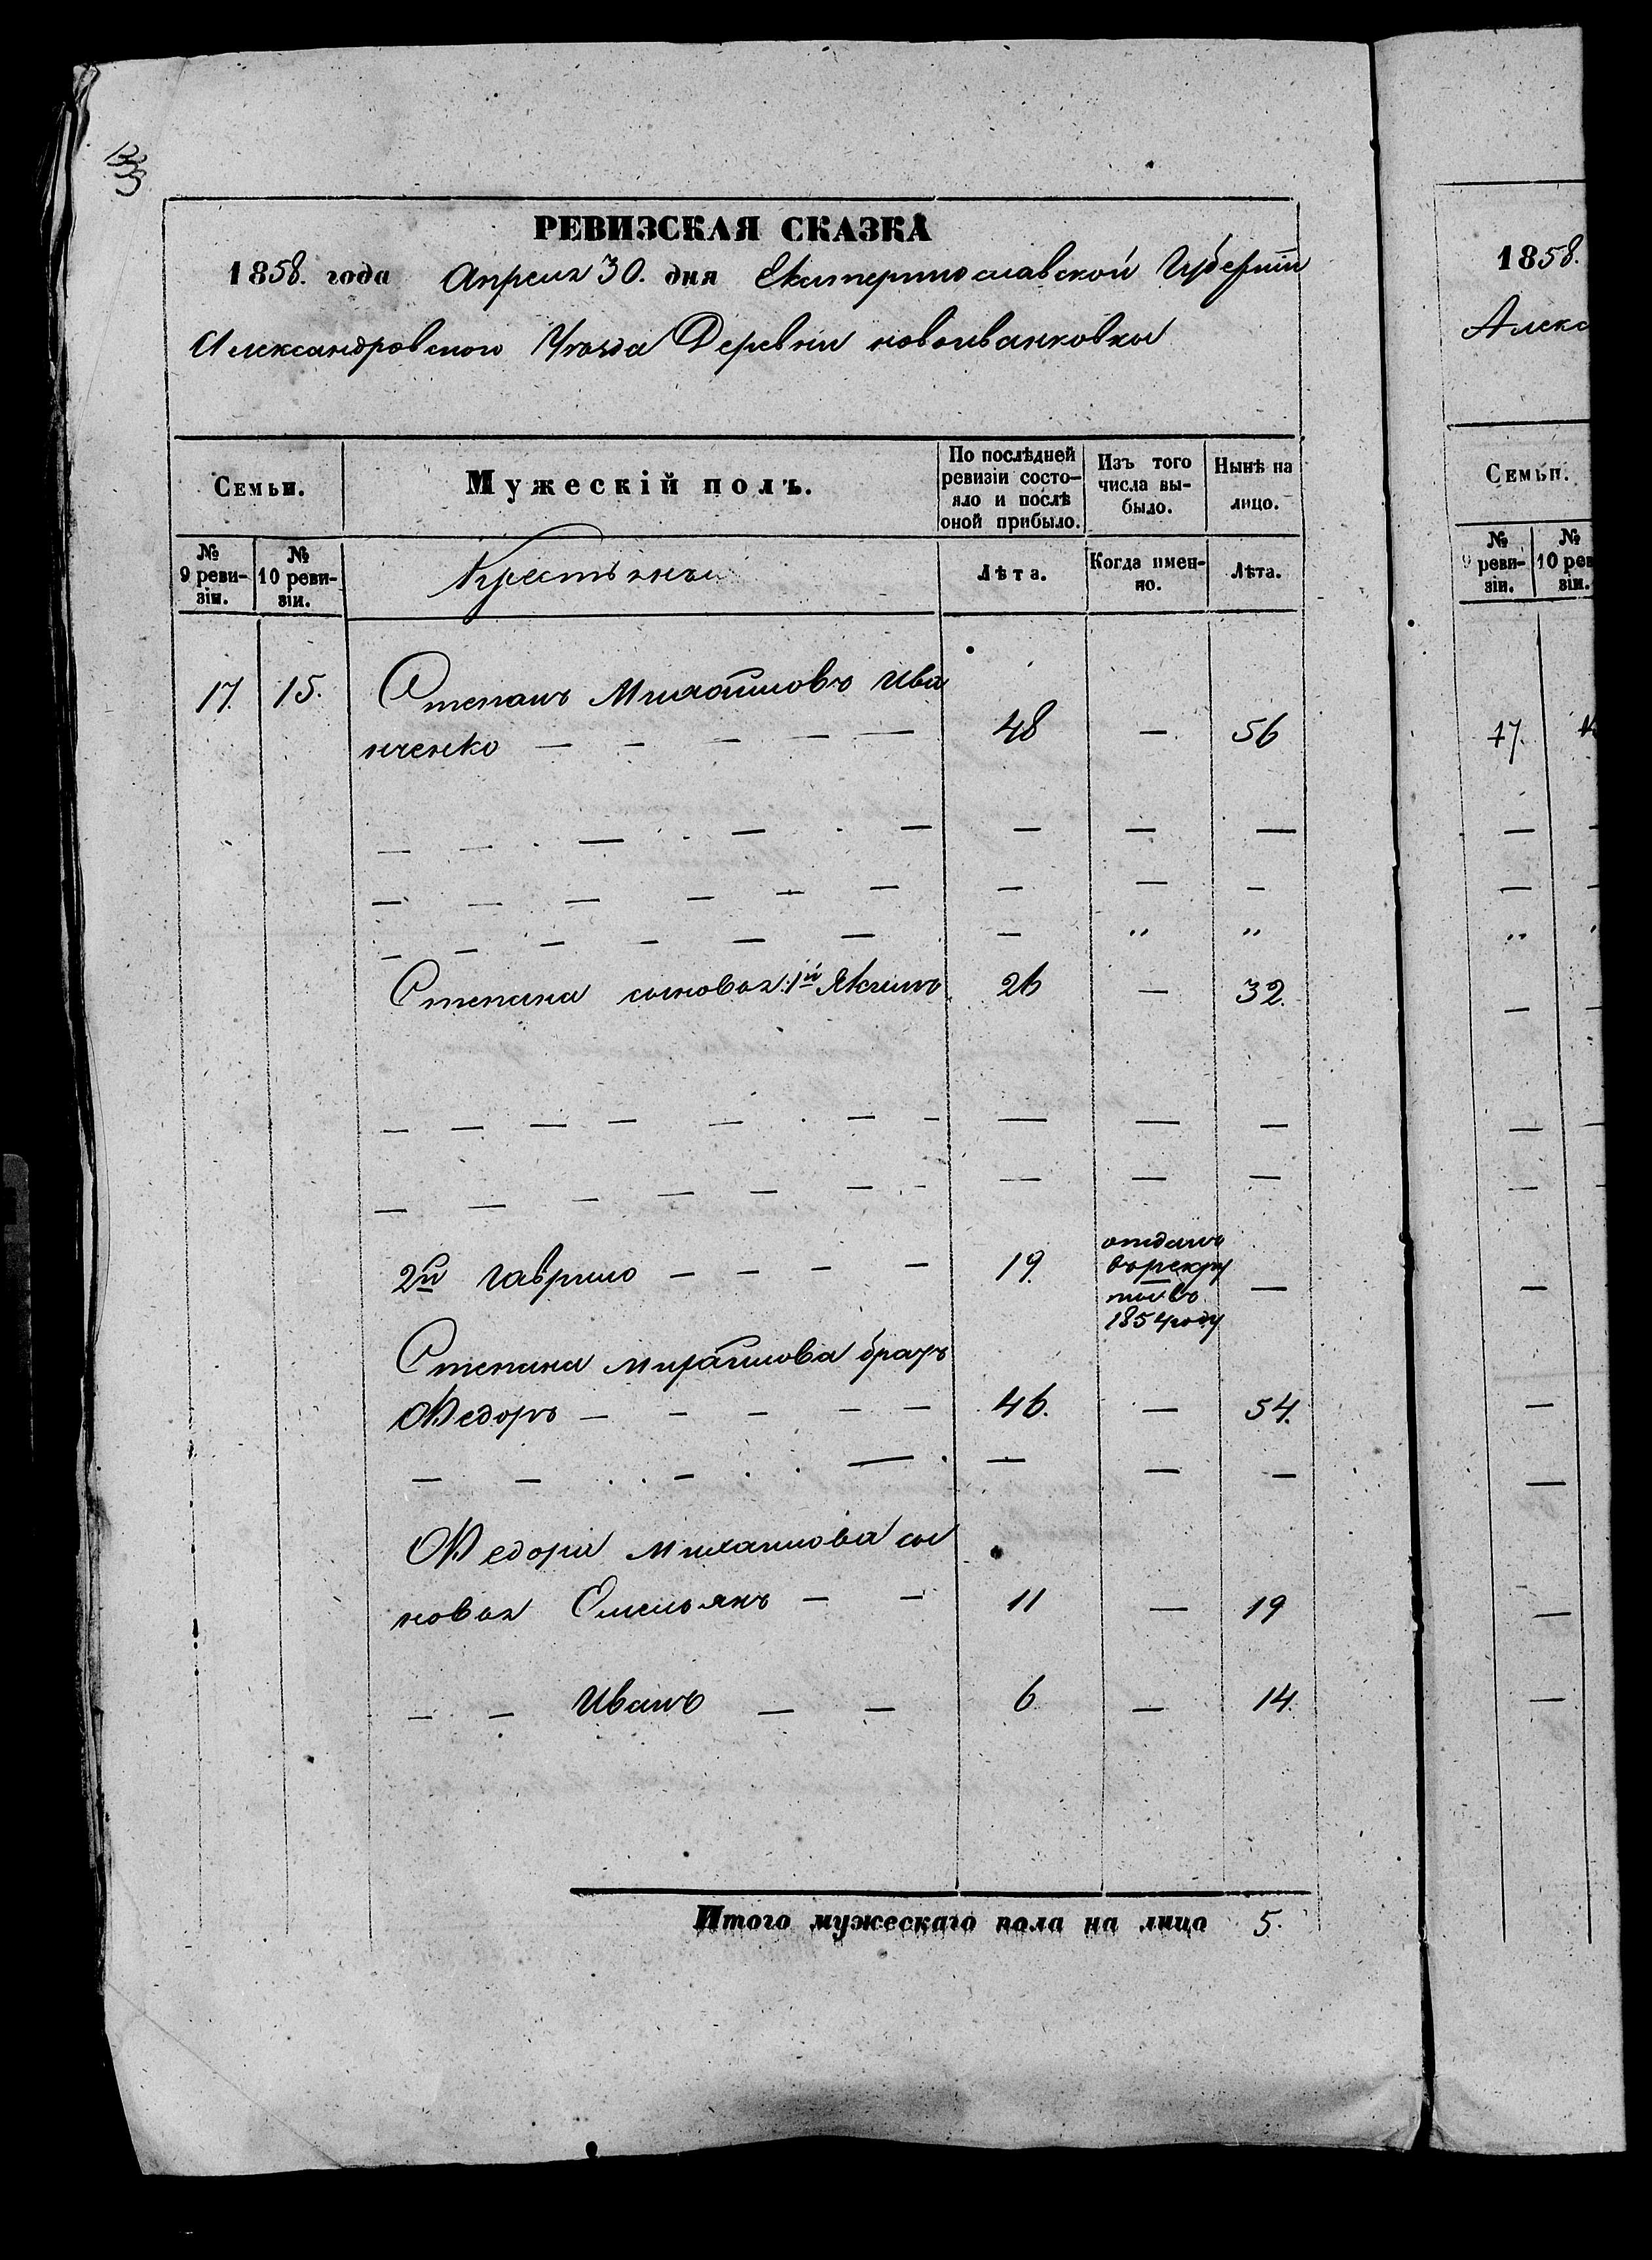 РЕВИЗСКАЯ СКАЗКА
1858. года Апреля 30. дня Екатеринославской Губерніи
Александровского Уѣзда Деревни новоивановки
Семьи.
Мужескій полъ.
По послѣдней ревизіи состо-
яло и послѣ оной прибыло.
Изъ того числа вы-
было.
Нынѣ на лицо.
№ 9 реви-
зіи.
№ 10 реви-
зіи.
Крестьяне
Лѣта.
Когда имен-
но.
Лѣта.
17. 15. Степанъ Михайловъ Ива
нченко — — — — — 48 — 56
Степана сыновья: 1й Якимъ 26 — 32.
2й Гаврило — — — — 19. отданъ
въ рекру
ты въ
1854 году —
Степана михайлова братъ
Федоръ — — — — — 46. — 54.
Федора михайлова сы
новья Емельянъ — — 11 — 19
— — Иванъ — — 6 — 14.
Итого мужескаго пола на лицо 5.
1858.
Алекс
Семьи.
№ 9 реви-
зіи.
№ 10 рев
зіи.
17.